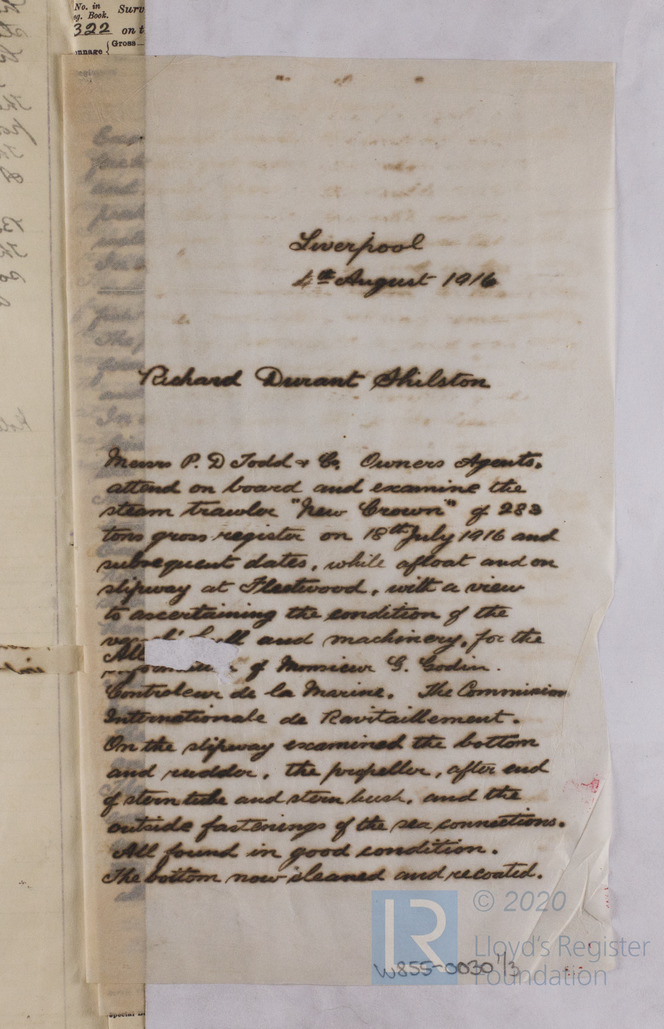 No. in
Surv
Reg. Book.
322 on t
Gross
Liverpool
4th August 1916
Richard Durant Shilston
Messrs P. D Todd & Co. Owners Agents,
attend on board and examine the
steam trawler "New Crown" of 283
tons gross register on 18th July 1916 and
subsequent dates, while afloat and on
slipway at Fleetwood, with a view
to ascertaining the condition of the
hull and machinery, for the
of Monsieur G. Godin.
Controleur de la Marine. The Commission
Internationale de Ravitaillement.
On the slipway examined the bottom
and rudder, the propeller, after end
of stern tube and stern bush, and the
outside fastenings of the sea connections.
All found in good condition.
The bottom now cleaned and recoated.
© 2020
LR
Lloyd's Register
Foundation
W855-0030 1/3